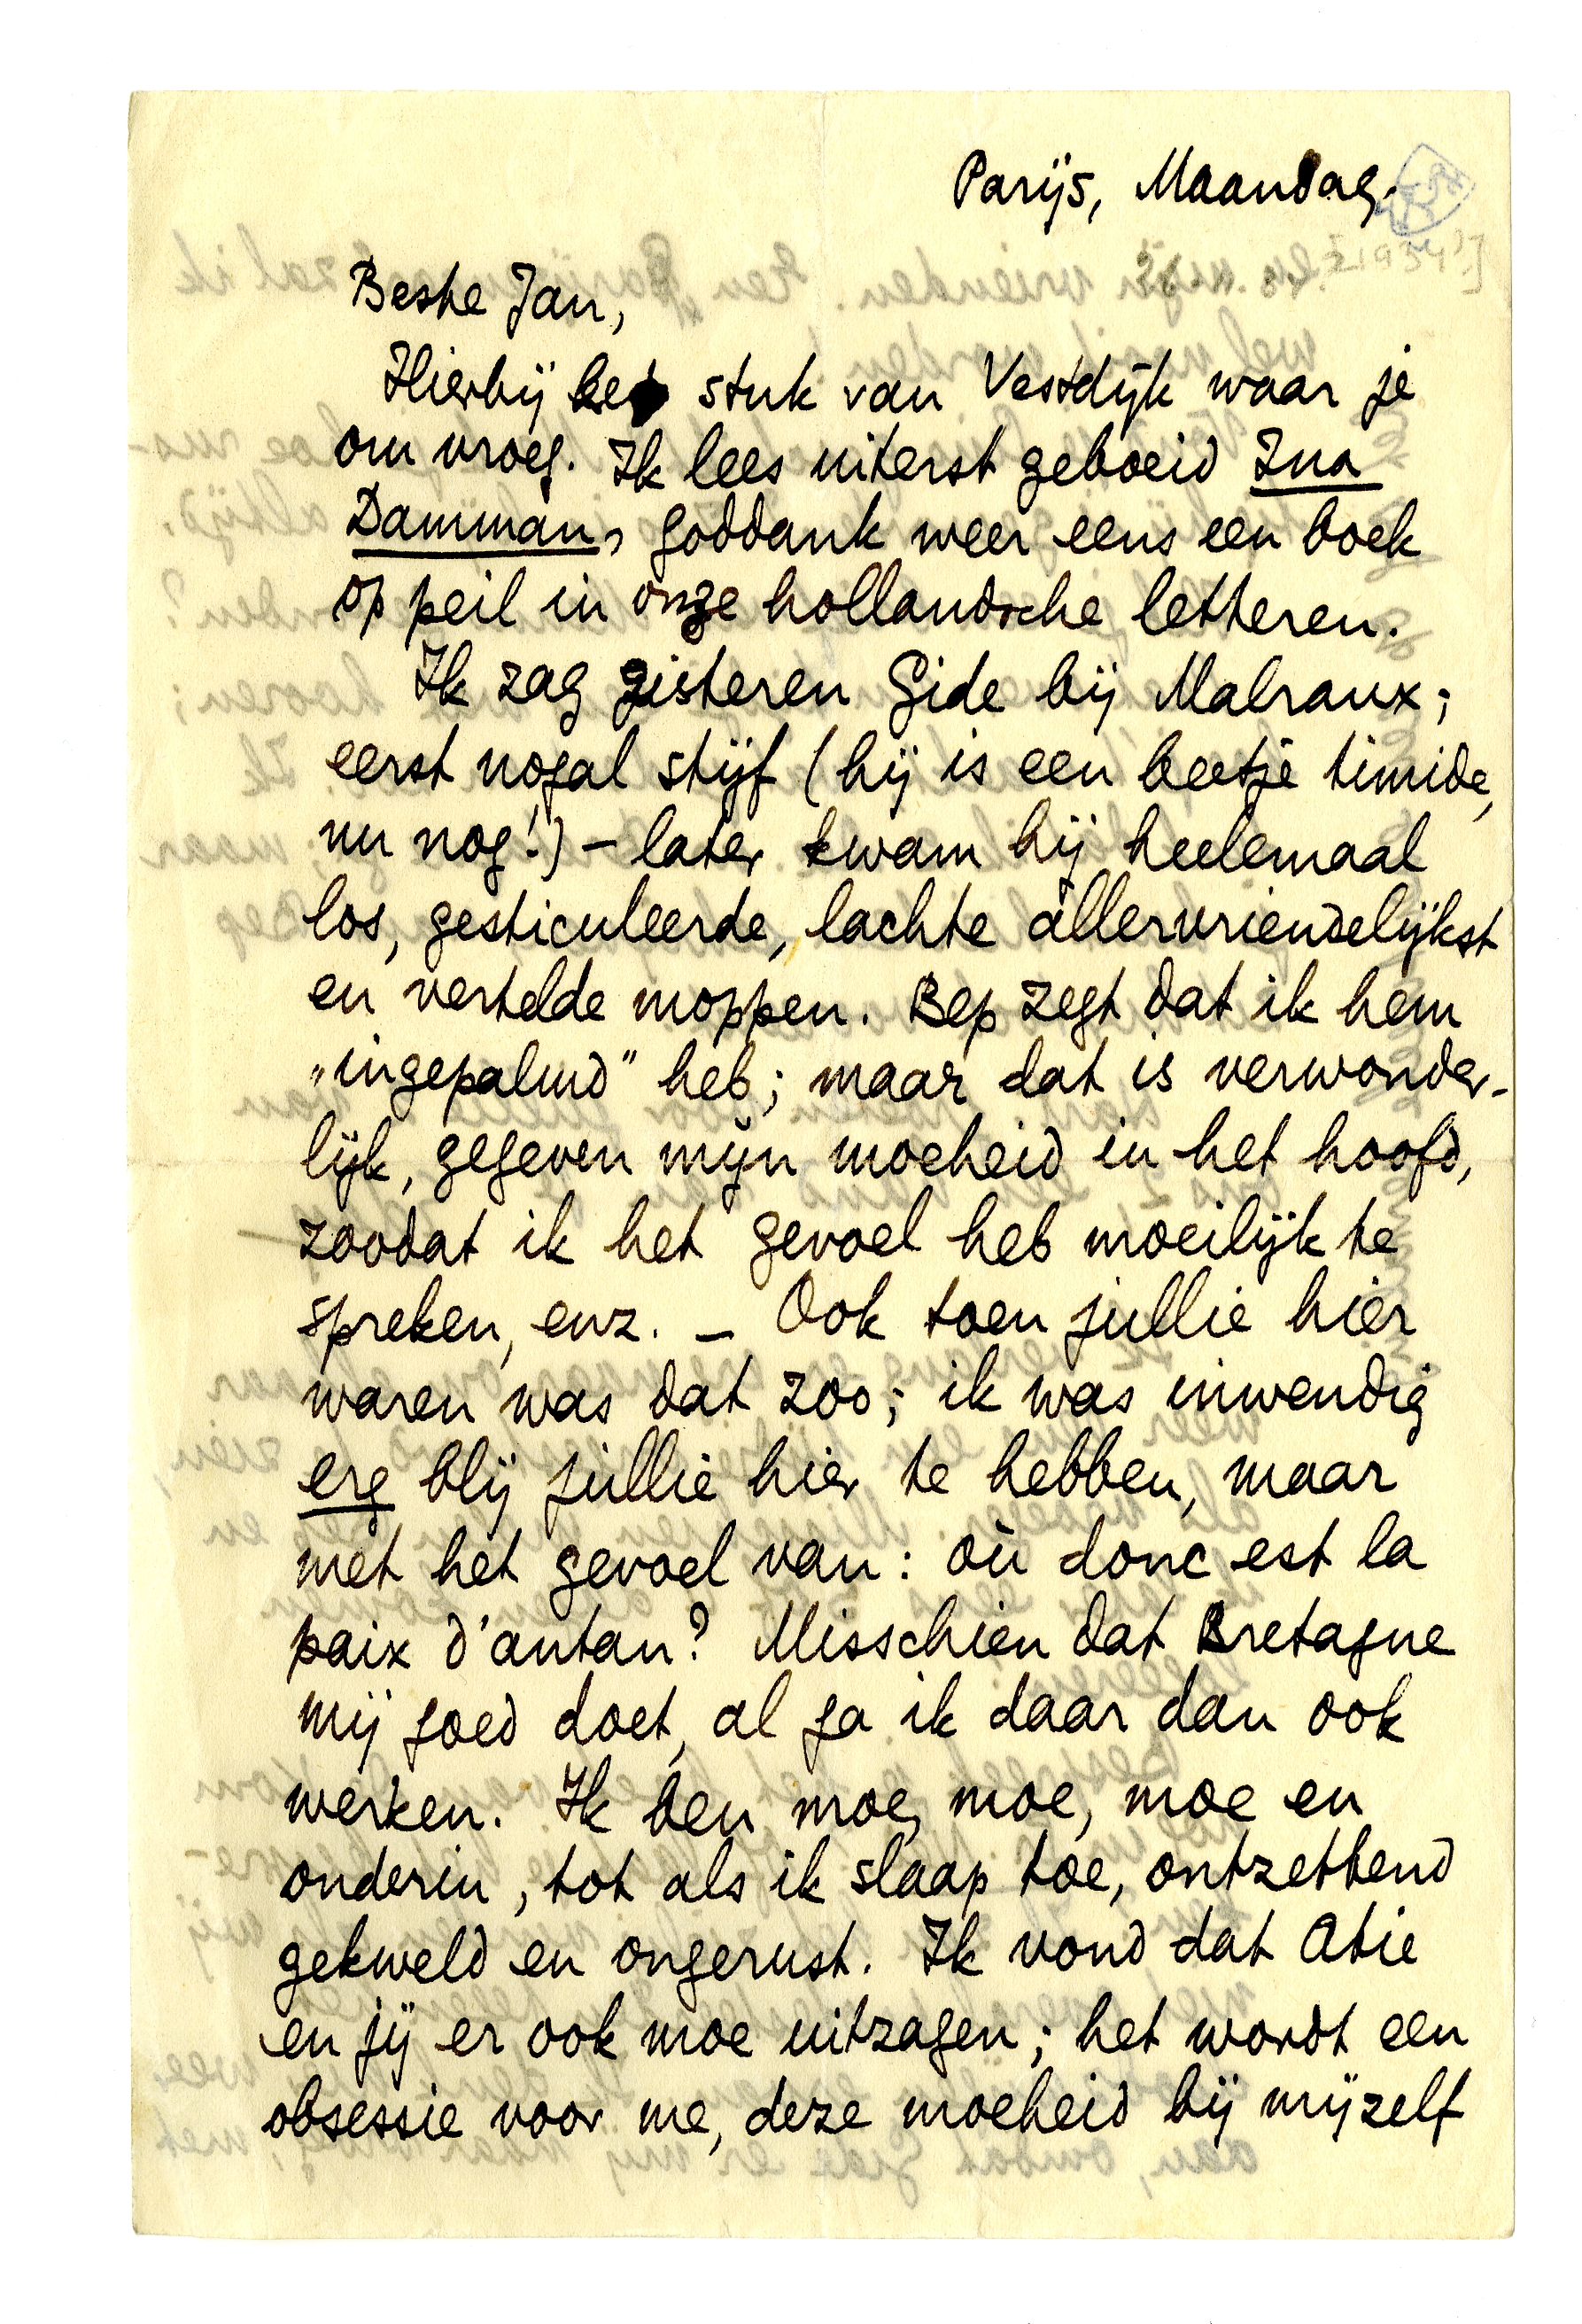 Parijs, Maandag.
[1934?]
Beste Jan,
Hierbij het stuk van Vestdijk waar je
om vroeg. Ik lees uiterst geboeid Ina
Damman, goddank weer eens een boek
op peil in onze hollandsche letteren.
Ik zag gisteren Gide bij Malraux;
eerst nogal stijf (hij is een beetje timide,
nu nog!) – later kwam hij heelemaal
los, gesticuleerde, lachte allervriendelijkst
en vertelde moppen. Bep zegt dat ik hem
„ingepalmd” heb; maar dat is verwonder-
lijk, gegeven mijn moeheid in het hoofd,
zoodat ik het gevoel heb moeilijk te
spreken, enz. – Ook toen jullie hier
waren was dat zoo; ik was inwendig
erg blij jullie hier te hebben, maar
met het gevoel van: où donc est la
paix d'antan? Misschien dat Bretagne
mij goed doet, al ga ik daar dan ook
werken. Ik ben moe, moe, moe en
onderin, tot als ik slaap toe, ontzettend
gekweld en ongerust. Ik vond dat Atie
en jij er ook moe uitzagen; het wordt een
obsessie voor me, deze moeheid bij mijzelf